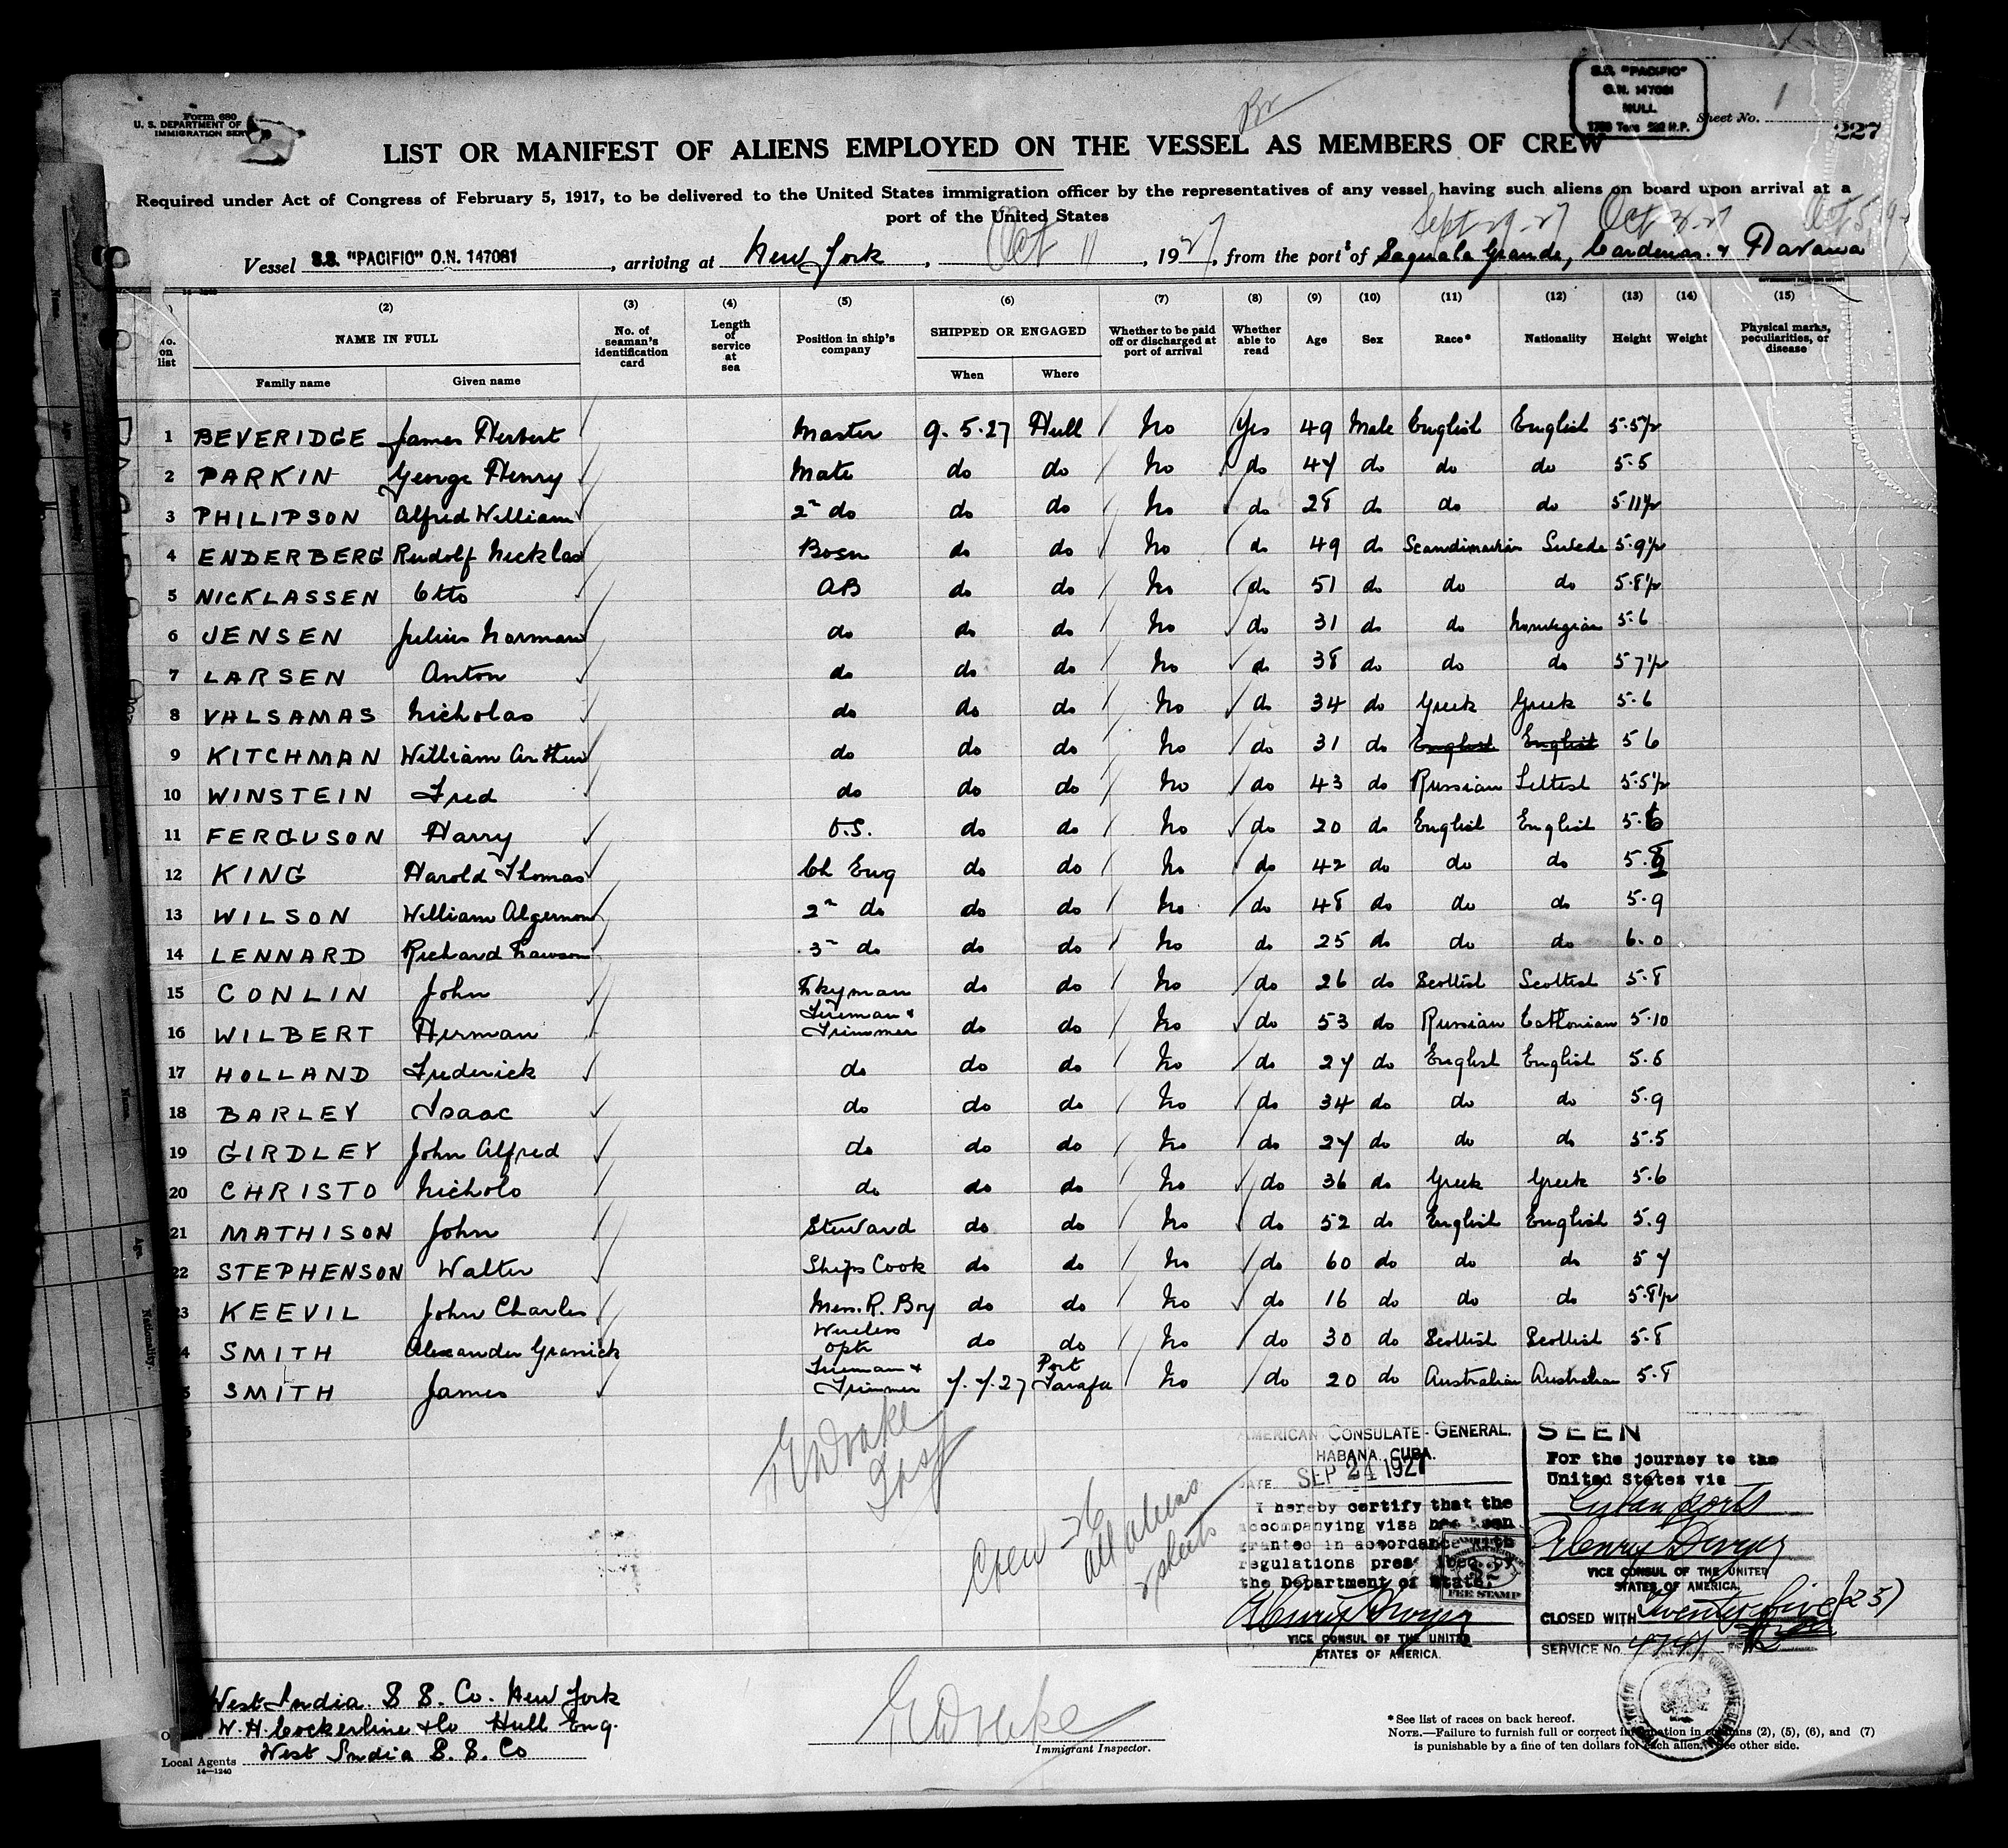 S.S. "PACIFIC"
O.N. 147081
HULL
Sheet No. 1
227
Form 680
U. S. DEPARTMENT OF
IMMIGRATION SER
LIST OR MANIFEST OF ALIENS EMPLOYED ON THE VESSEL AS MEMBERS OF CREW
Required under Act of Congress of February 5, 1917, to be delivered to the United States immigration officer by the representatives of any vessel having such aliens on board upon arrival at a
port of the United States
Sept 29-27 Oct 3-27 Oct 5
Vessel S.S. "PACIFIC" O.N. 147081, arriving at New York, Oct 11, 1927, from the ports of Sagua la Grande, Cardenas & Havana
(2) (3) (4) (5) (6) (7) (8) (9) (10) (11) (12) (13) (14) (15)
No. on list NAME IN FULL No. of seaman's identification card Length of service at sea Position in ship's company SHIPPED OR ENGAGED Whether to be paid off or discharged at port of arrival Whether able to read Age Sex Race* Nationality Height Weight Physical marks, peculiarities, or disease
Family name Given name When Where
1 BEVERIDGE James Herbert Master 9.5.27 Hull No Yes 49 Male English English 5.5½
2 PARKIN George Henry Mate do do No do 47 do do do 5.5
3 PHILIPSON Alfred William 2n do do do No do 28 do do do 5 11½
4 ENDERBERG Rudolf Nicklas Bosn do do No do 49 do Scandinavian Swede 5.9½
5 NICKLASSEN Otto AB do do No do 51 do do do 5.8½
6 JENSEN Julius Norman do do do No do 31 do do Norwegian 5.6
7 LARSEN Anton do do do No do 38 do do do 5 7½
8 VALSAMAS Nicholas do do do No do 34 do Greek Greek 5.6
9 KITCHMAN William Arthur do do do No do 31 do English English 5 6
10 WINSTEIN Fred do do do No do 43 do Russian Lettish 5.5½
11 FERGUSON Harry O.S. do do No do 20 do English English 5.6
12 KING Harold Thomas Ch Eng do do No do 42 do do do 5.9
13 WILSON William Algernon 2n do do do No do 48 do do do 5.9
14 LENNARD Richard Lawson 3- do do do No do 25 do do do 6.0
15 CONLIN John Dkyman do do No do 26 do Scottish Scottish 5.8
16 WILBERT Herman Fireman & Trimmer do do No do 53 do Russian Esthonian 5.10
17 HOLLAND Frederick do do do No do 27 do English English 5.6
18 BARLEY Isaac do do do No do 34 do do do 5.9
19 GIRDLEY John Alfred do do do No do 27 do do do 5.5
20 CHRISTO Nicholo do do do No do 36 do Greek Greek 5.6
21 MATHISON John Steward do do No do 52 do English English 5.9
22 STEPHENSON Walter Ships Cook do do No do 60 do do do 5 7
23 KEEVIL John Charles Mess. R. Boy do do No do 16 do do do 5.8½
4 SMITH Alexander Granick Wireless optr do do No do 30 do Scottish Scottish 5.8
5 SMITH James Fireman & Trimmer 7.7.27 Port Tarafa No do 20 do Australian Australian 5.8
E W Drake
Insp
Crew 26
all aliens
2 sheets
AMERICAN CONSULATE-GENERAL.
HABANA, CUBA.
DATE SEP 24 1927
I hereby certify that the
accompanying visa has been
granted in accordance with
regulations prescribed by
the Department of State.
$2
FEE STAMP
VICE CONSUL OF THE UNITED
STATES OF AMERICA.
SEEN
For the journey to the
United States via
Cuban ports
VICE CONSUL OF THE UNITED
STATES OF AMERICA.
CLOSED WITH Twenty five (25)
SERVICE No.
West India S S. Co. New York
W. H. Cockerline & Co Hull Eng.
Local Agents West India S. S. Co
14—1240
E W Drake
Immigrant Inspector.
*See list of races on back hereof.
NOTE.—Failure to furnish full or correct information in columns (2), (5), (6), and (7)
is punishable by a fine of ten dollars for each alien. See other side.